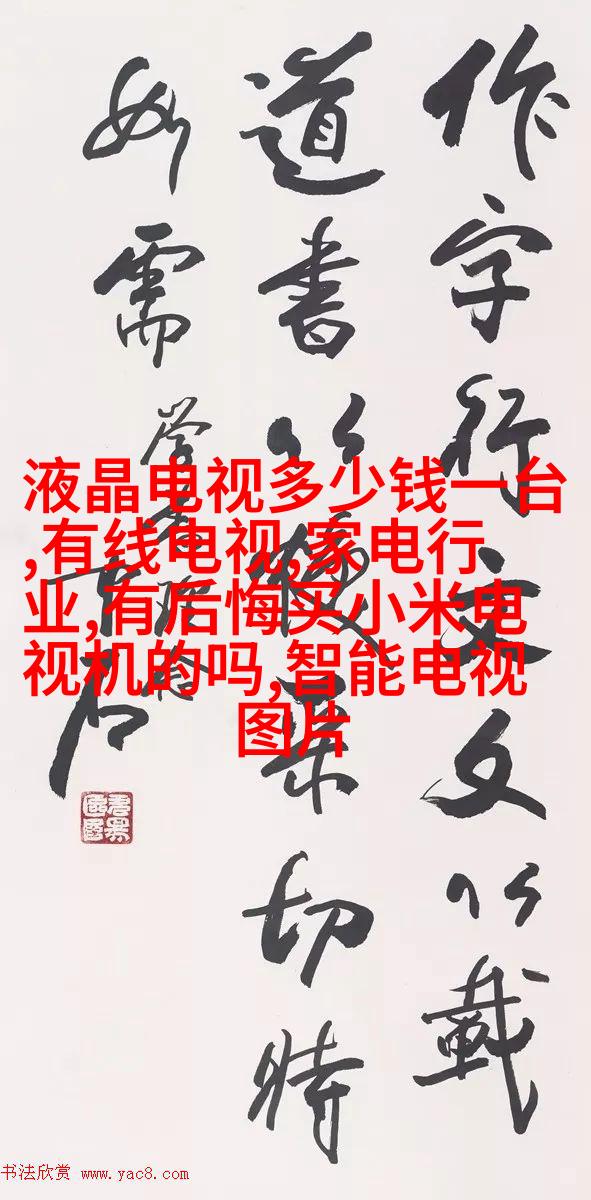 作字行文文以載
道書以采切時
如需
液晶电视多少钱一台
,有线电视,家电行
业,有后悔买小米电
视机的吗,智能电视
图片
书法欣赏 www.yac8.com